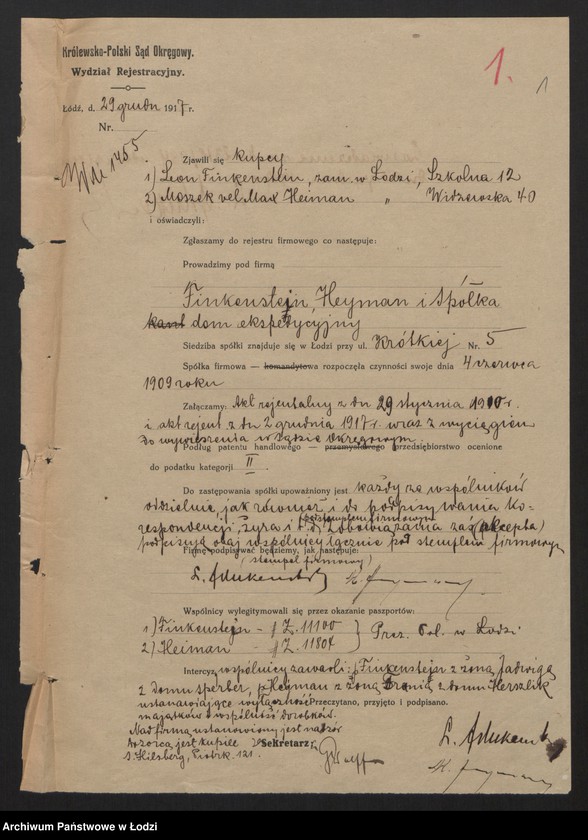 Królewsko-Polski Sąd Okręgowy.
Wydział Rejestracyjny.
1.
1
Łódź, d. 29 grudn 1917 r.
Nr.
1455
Zjawili się kupcy
1) Leon Finkenstein, zam. w Łodzi, Szkolna 12
2) Moszek vel Max Heiman " Widzewska 40
i oświadczyli:
Zgłaszamy do rejestru firmowego co następuje:
Prowadzimy pod firmą
Finkenstejn, Heyman i Spółka
dom ekspedycyjny
Siedziba spółki znajduje się w Łodzi przy ul. Krótkiej Nr. 5
Spółka firmowa — komandytowa rozpoczęła czynności swoje dnia 4 czerwca
1909 roku
Załączamy: Akt rejentalny z dn 29 stycznia 1910 r.
i akt rejent. z dn 2 grudnia 1917 r. wraz z wyciągiem
do wywieszenia w Sądzie Okręgowym.
Podług patentu handlowego — przemysłowego przedsiębiorstwo ocenione
do podatku kategorji II.
Do zastępowania spółki upoważniony jest każdy ze wspólników
oddzielnie, jak również i do podpisywania ko-
respondencji, żyra i t.d.
zobowiązania zaś (akcepta)
podpisują obaj wspólnicy łącznie pod stemplem firmowym
Firmę podpisywać będziemy, jak następuje:
(stempel firmowy)
Wspólnicy wylegitymowali się przez okazanie paszportów:
1) Finkenstejn - Z. 11100
2) Heiman - Z. 11804
Prez. Pol. w Łodzi
Intercyz wspólnicy zawarli: p. Finkenstejn z żoną Jadwigą
z domu Sperber, p. Heyman z żoną z domu Herszlik
ustanawiające wyłączność
Przeczytano, przyjęto i podpisano.
majątków i wspólność dorobków.
Nad firmą ustanowiony jest nadzór
dozorcą jest kupiec
Sekretarz:
S. Hilsberg, Piotrk. 121.
Archiwum Państwowe w Łodzi